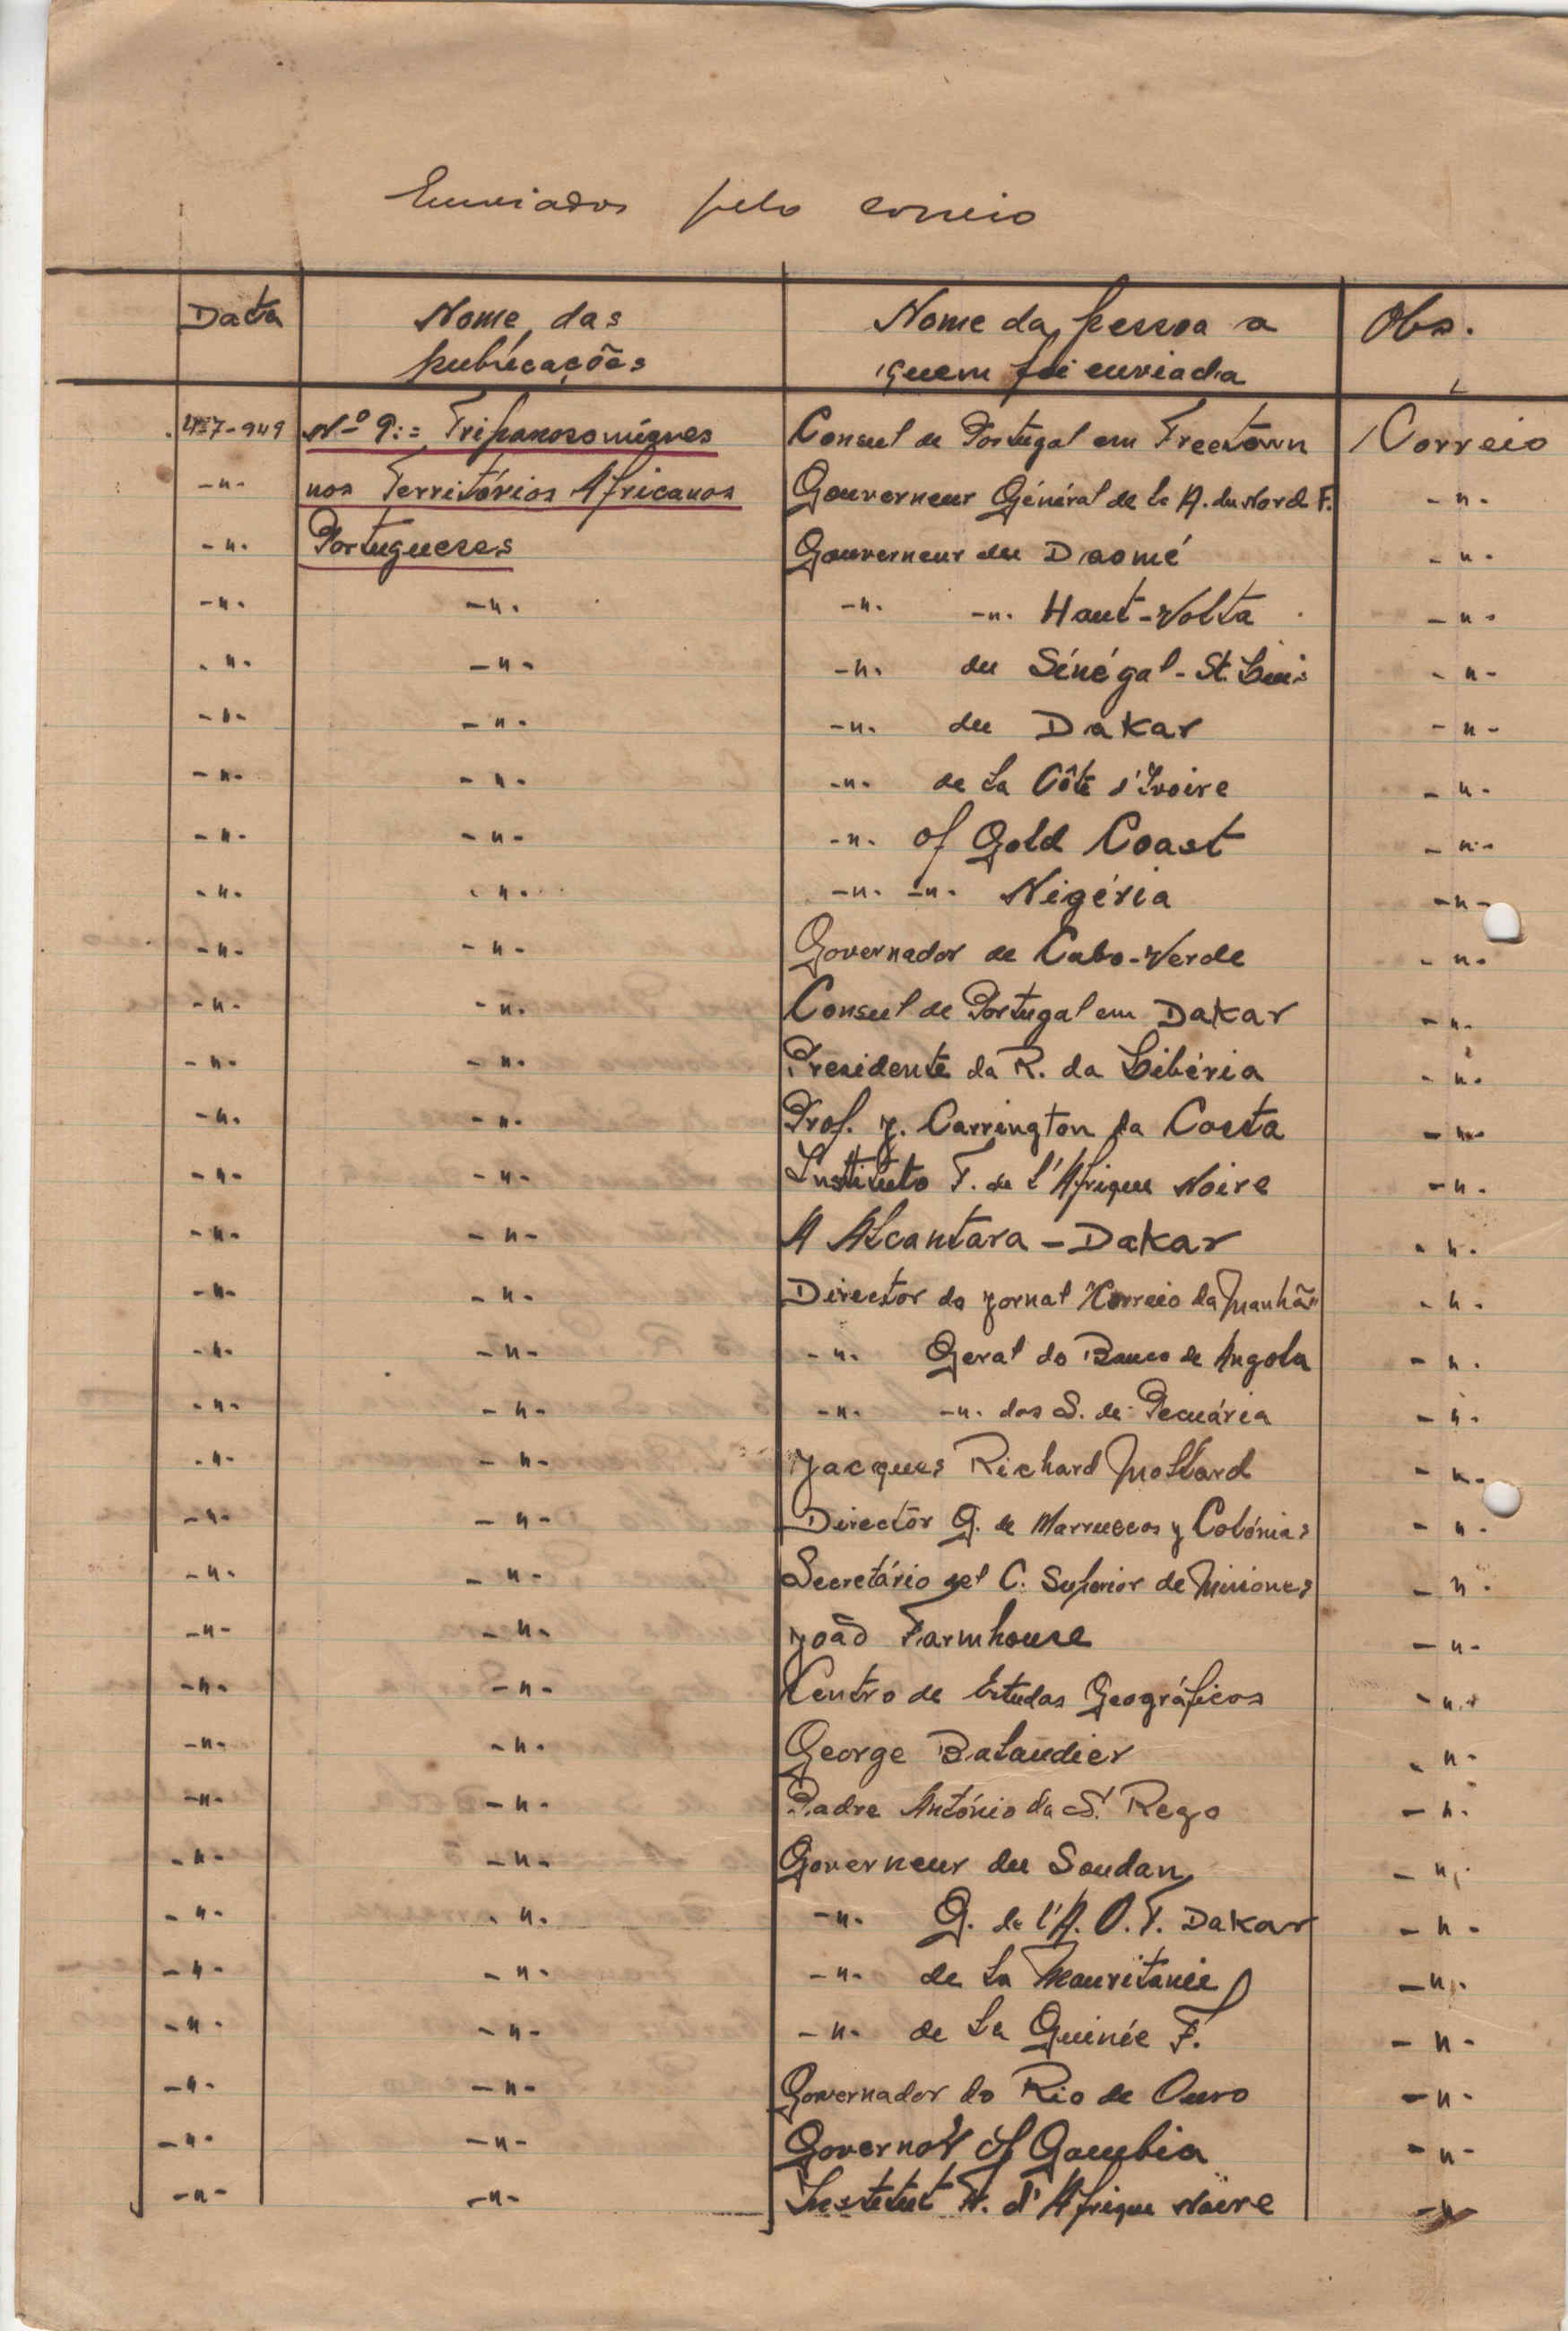 Enviados pelo correio
Data | Nome das publicações | Nome da pessoa a quem foi enviada | Obs.
7-949 | Nº 9:= Tripanosomíases | Consul de Portugal em Freetown | Correio
-"- | nos Territórios Africanos | Gouverneur Général de la A. du Nord F. | -"-
-"- | Portugueses | Gouverneur du Daomé | -"-
-"- | -"- | -"- -"- Haut-Volta | -"-
-"- | -"- | -"- du Sénégal - St. Luis | -"-
-"- | -"- | -"- du Dakar | -"-
-"- | -"- | -"- de La Côte d'Ivoire | -"-
-"- | -"- | -"- of Gold Coast | -"-
-"- | -"- | -"- -"- Nigéria | -"-
-"- | -"- | Governador de Cabo-Verde | -"-
-"- | -"- | Consul de Portugal em Dakar | -"-
-"- | -"- | Presidente da R. da Libéria | -"-
-"- | -"- | Prof. J. Carrington da Costa | -"-
-"- | -"- | Instituto F. de l'Afrique Noire | -"-
-"- | -"- | A Alcantara - Dakar | -"-
-"- | -"- | Director do jornal "Correio da Manhã" | -"-
-"- | -"- | -"- Geral do Banco de Angola | -"-
-"- | -"- | -"- -"- dos S. de Pecuária | -"-
-"- | -"- | Jacques Richard Mollard | -"-
-"- | -"- | Director G. de Marruecos y Colónias | -"-
-"- | -"- | Secretário del C. Superior de Misiones | -"-
-"- | -"- | João Farmhouse | -"-
-"- | -"- | Centro de Estudos Geográficos | -"-
-"- | -"- | George Balandier | -"-
-"- | -"- | Padre António da S. Rego | -"-
-"- | -"- | Governeur du Soudan | -"-
-"- | -"- | -"- G. de l'A. O. F. Dakar | -"-
-"- | -"- | -"- de La Mauritanie | -"-
-"- | -"- | -"- de La Guinée F. | -"-
-"- | -"- | Governador do Rio de Ouro | -"-
-"- | -"- | Governor of Gambia | -"-
-"- | -"- | Institut F. d'Afrique Noire | -"-